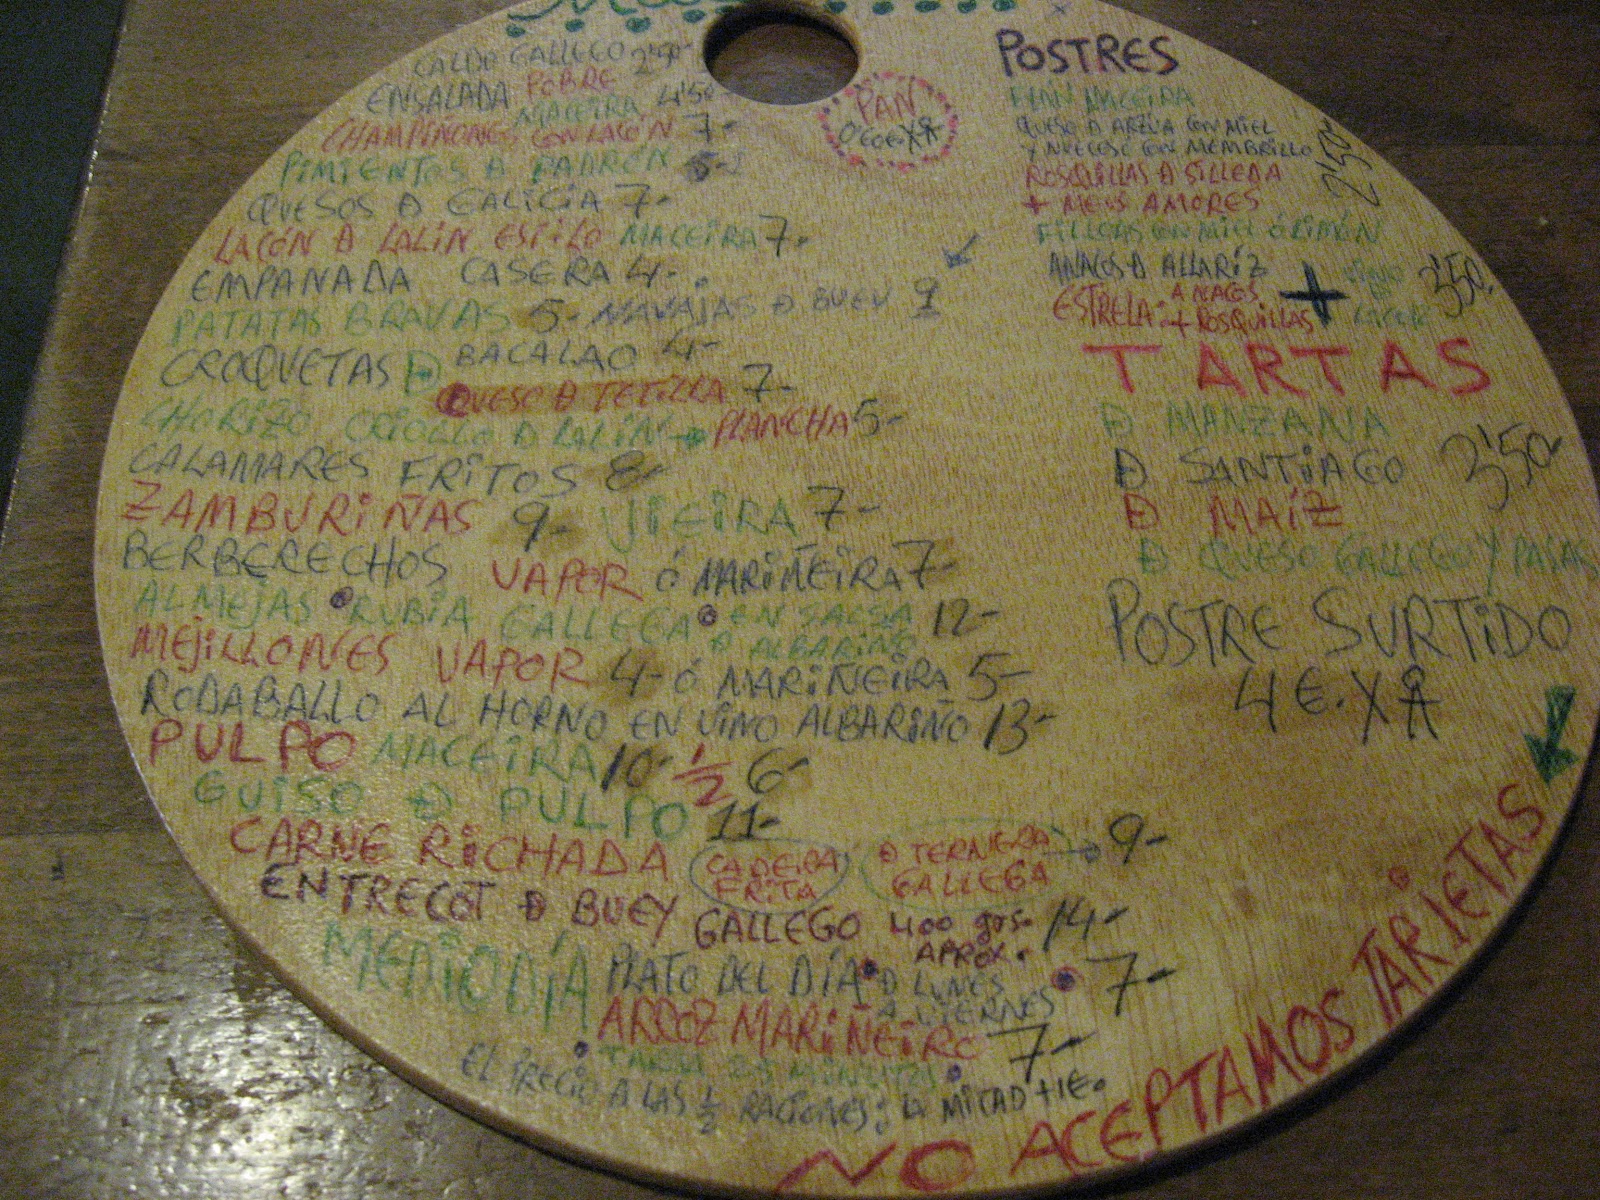 CALDO GALLEGO 2'50-
ENSALADA POBRE
MACEIRA 4'50
CHAMPIÑONES CON LACÓN 7-
PIMIENTOS D PADRÓN
QUESOS D GALICIA 7-
LACÓN D LALIN ESTILO MACEIRA 7-
EMPANADA CASERA 4-
PATATAS BRAVAS 5- NAVAJAS D BUEU 9
CROQUETAS D BACALAO 4-
QUESO D TETILLA 7-
CHORIZO CRIOLLO D LALIN → PLANCHA 5-
CALAMARES FRITOS 8-
ZAMBURIÑAS 9- VIEIRA 7-
BERBERECHOS VAPOR Ó MARIÑEIRA 7-
ALMEJAS • RUBIA GALLEGA • EN SALSA
D ALBARIÑO 12-
MEJILLONES VAPOR 4- Ó MARIÑEIRA 5-
RODABALLO AL HORNO EN VINO ALBARIÑO 13-
PULPO MACEIRA 10- ½ 6-
GUISO D PULPO 11-
CARNE RICHADA CADEIRA FRITA D TERNERA GALLEGA → 9-
ENTRECOT D BUEY GALLEGO 400 grs. APROX. 14-
MEDIODÍA PLATO DEL DÍA • D LUNES A VIERNES • 7-
ARROZ MARIÑEIRO 7-
• TARDA 25 MINUTOS •
EL PRECIO A LAS ½ RACIONES: LA MITAD +1€.
PAN
0'60€X
POSTRES
FLAN MACEIRA
QUESO D ARZUA CON MIEL
Y NUECES O CON MEMBRILLO
ROSQUILLAS D SILLEDA
+ MEUS AMORES
2'50-
FILLOAS CON MIEL Ó LIMÓN
ANACOS D ALLARIZ
ESTRELA: ANACOS
+ ROSQUILLAS
+
3'50-
TARTAS
D MANZANA
D SANTIAGO
D MAÍZ
D QUESO GALLEGO Y PASAS
3'50-
POSTRE SURTIDO
4€.X
NO ACEPTAMOS TARJETAS